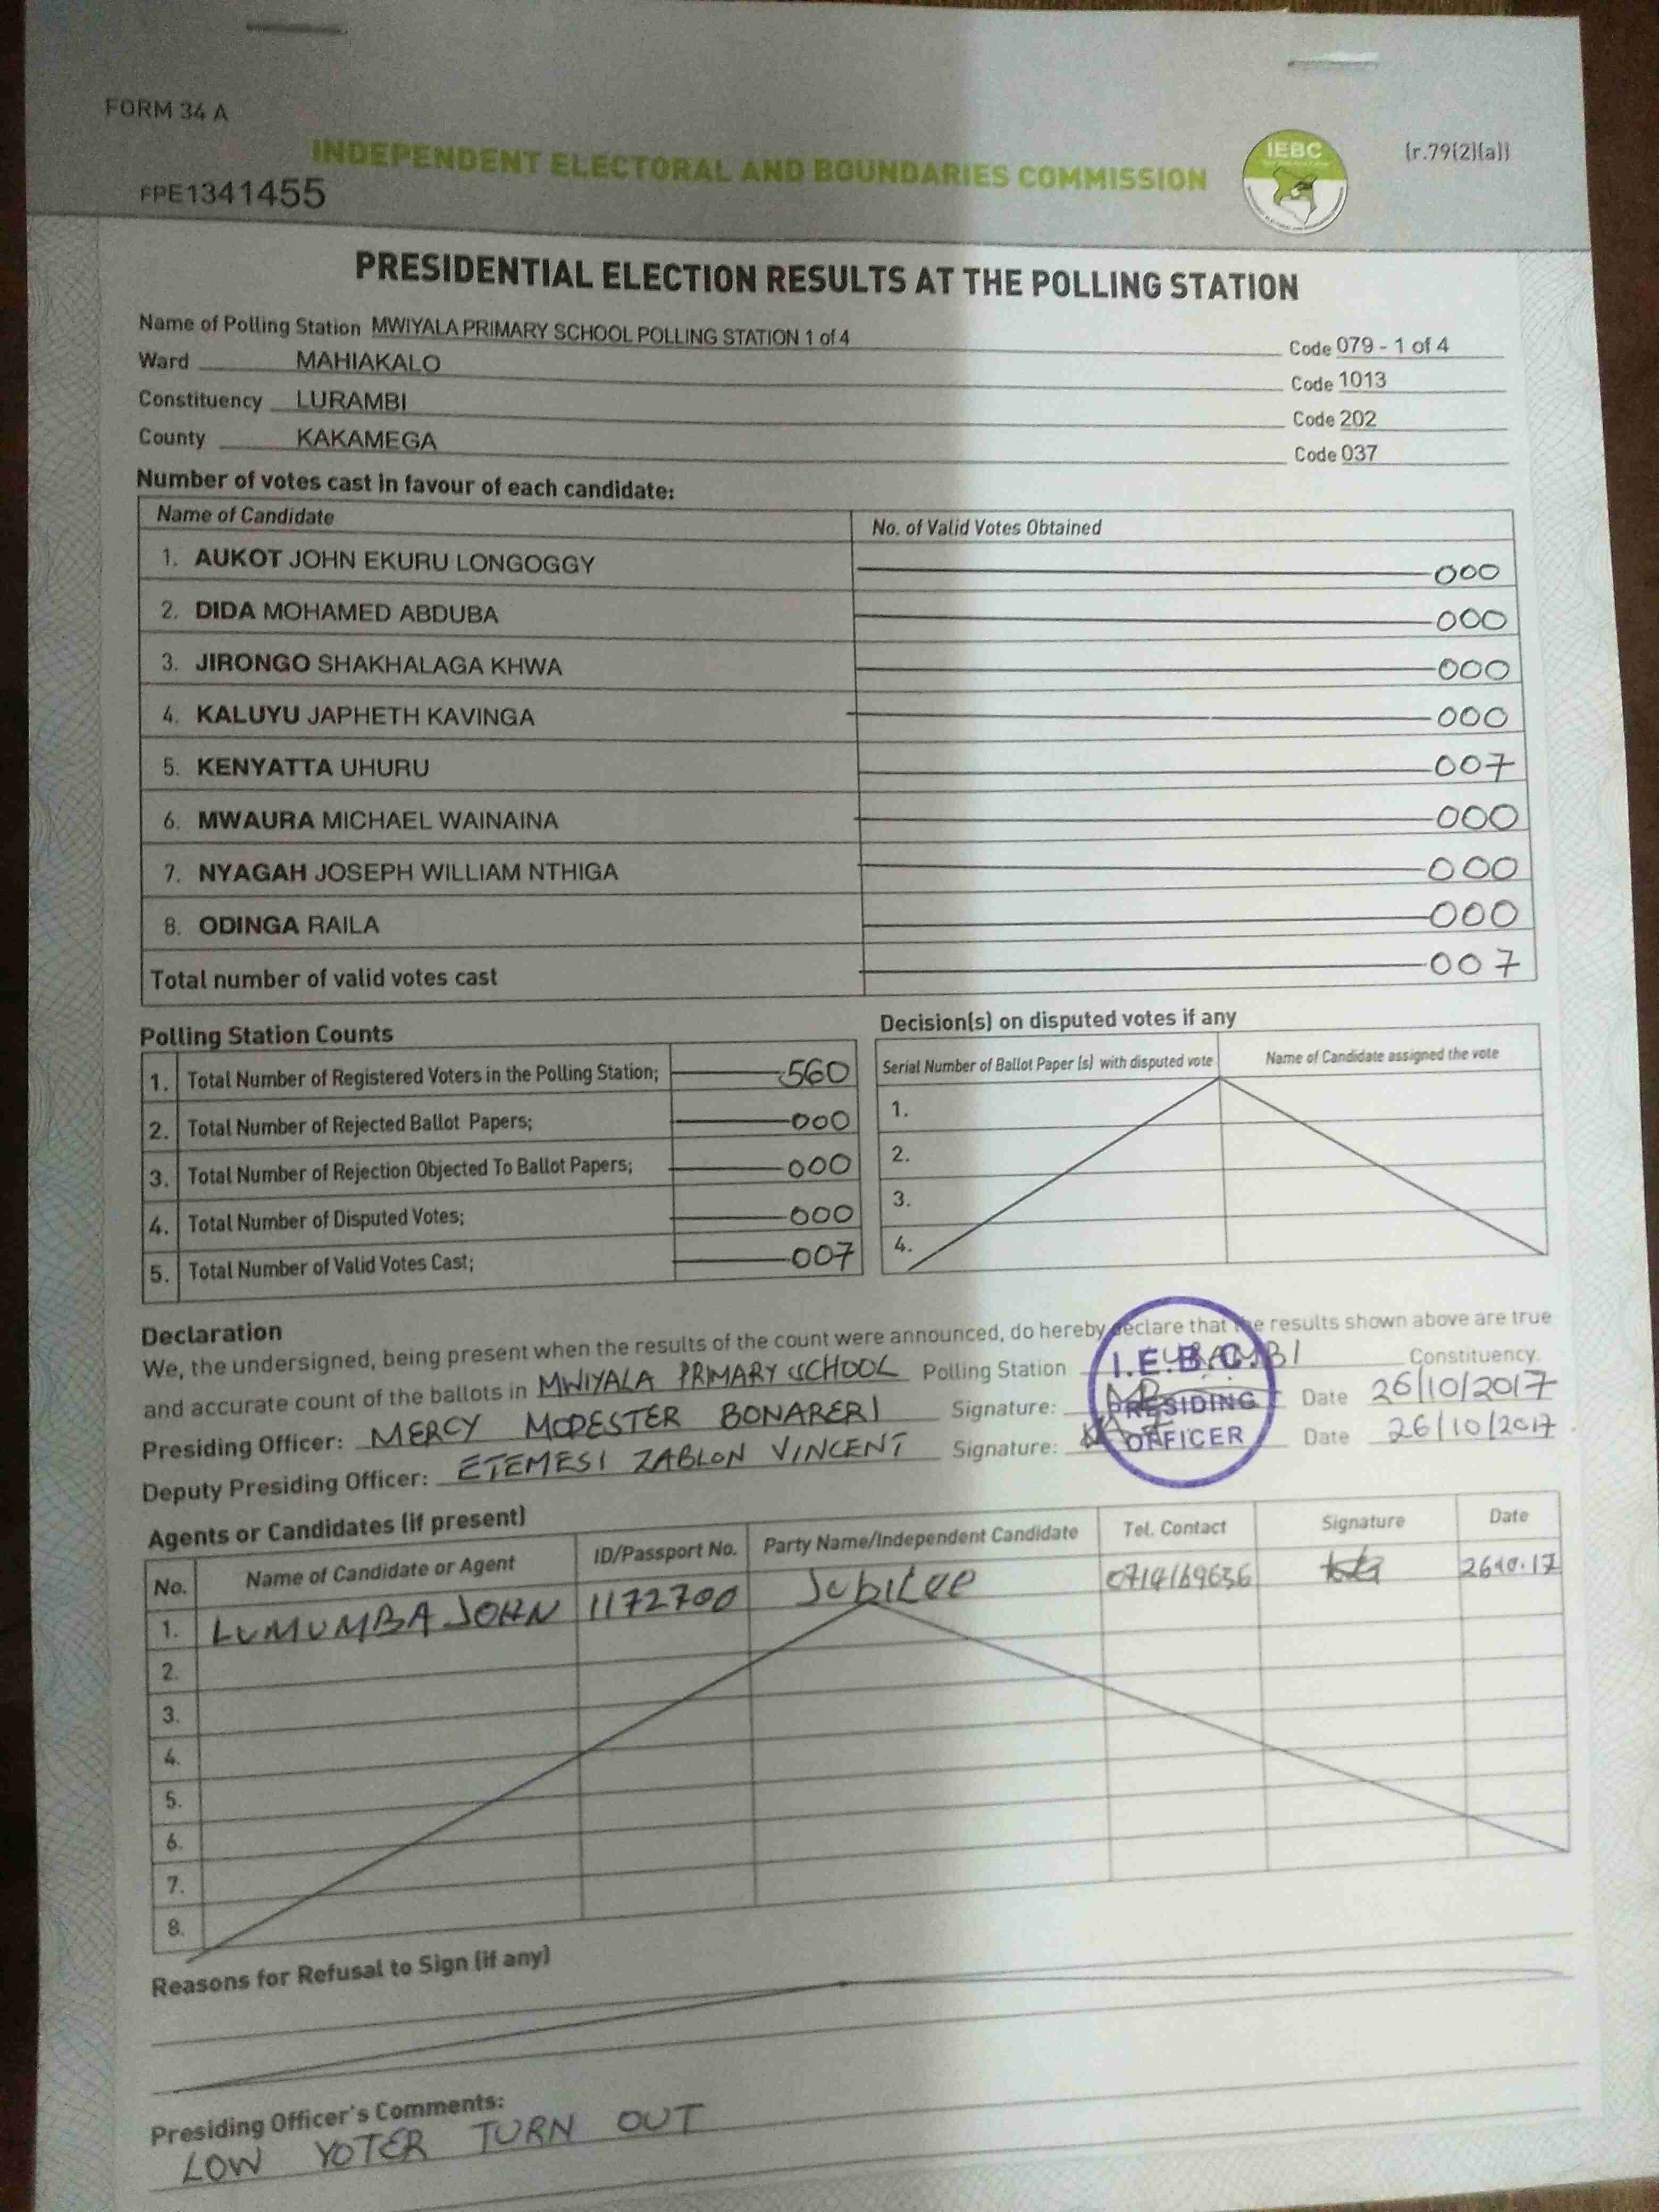 FORM 34 A
(r.79(2)(a))
INDEPENDENT ELECTORAL AND BOUNDARIES COMMISSION
IEBC
FPE1341455
PRESIDENTIAL ELECTION RESULTS AT THE POLLING STATION
Name of Polling Station MWIYALA PRIMARY SCHOOL POLLING STATION 1 of 4 Code 079 - 1 of 4
Ward MAHIAKALO Code 1013
Constituency LURAMBI Code 202
County KAKAMEGA Code 037
Number of votes cast in favour of each candidate:
Name of Candidate No. of Valid Votes Obtained
1. AUKOT JOHN EKURU LONGOGGY 000
2. DIDA MOHAMED ABDUBA 000
3. JIRONGO SHAKHALAGA KHWA 000
4. KALUYU JAPHETH KAVINGA 000
5. KENYATTA UHURU 007
6. MWAURA MICHAEL WAINAINA 000
7. NYAGAH JOSEPH WILLIAM NTHIGA 000
8. ODINGA RAILA 000
Total number of valid votes cast 007
Polling Station Counts
1. Total Number of Registered Voters in the Polling Station; 560
2. Total Number of Rejected Ballot Papers; 000
3. Total Number of Rejection Objected To Ballot Papers; 000
4. Total Number of Disputed Votes; 000
5. Total Number of Valid Votes Cast; 007
Decision(s) on disputed votes if any
Serial Number of Ballot Paper (s) with disputed vote Name of Candidate assigned the vote
1.
2.
3.
4.
Declaration
We, the undersigned, being present when the results of the count were announced, do hereby declare that the results shown above are true
and accurate count of the ballots in MWIYALA PRIMARY SCHOOL Polling Station LURAMBI Constituency.
Presiding Officer: MERCY MODESTER BONARERI Signature: Date 26/10/2017
Deputy Presiding Officer: ETEMESI ZABLON VINCENT Signature: Date 26/10/2017
I.E.B.C.
PRESIDING
OFFICER
Agents or Candidates (if present)
No. Name of Candidate or Agent ID/Passport No. Party Name/Independent Candidate Tel. Contact Signature Date
1. LUMUMBA JOHN 1172700 Jubilee 0714169636 26.10.17
2.
3.
4.
5.
6.
7.
8.
Reasons for Refusal to Sign (if any)
Presiding Officer's Comments:
LOW VOTER TURN OUT